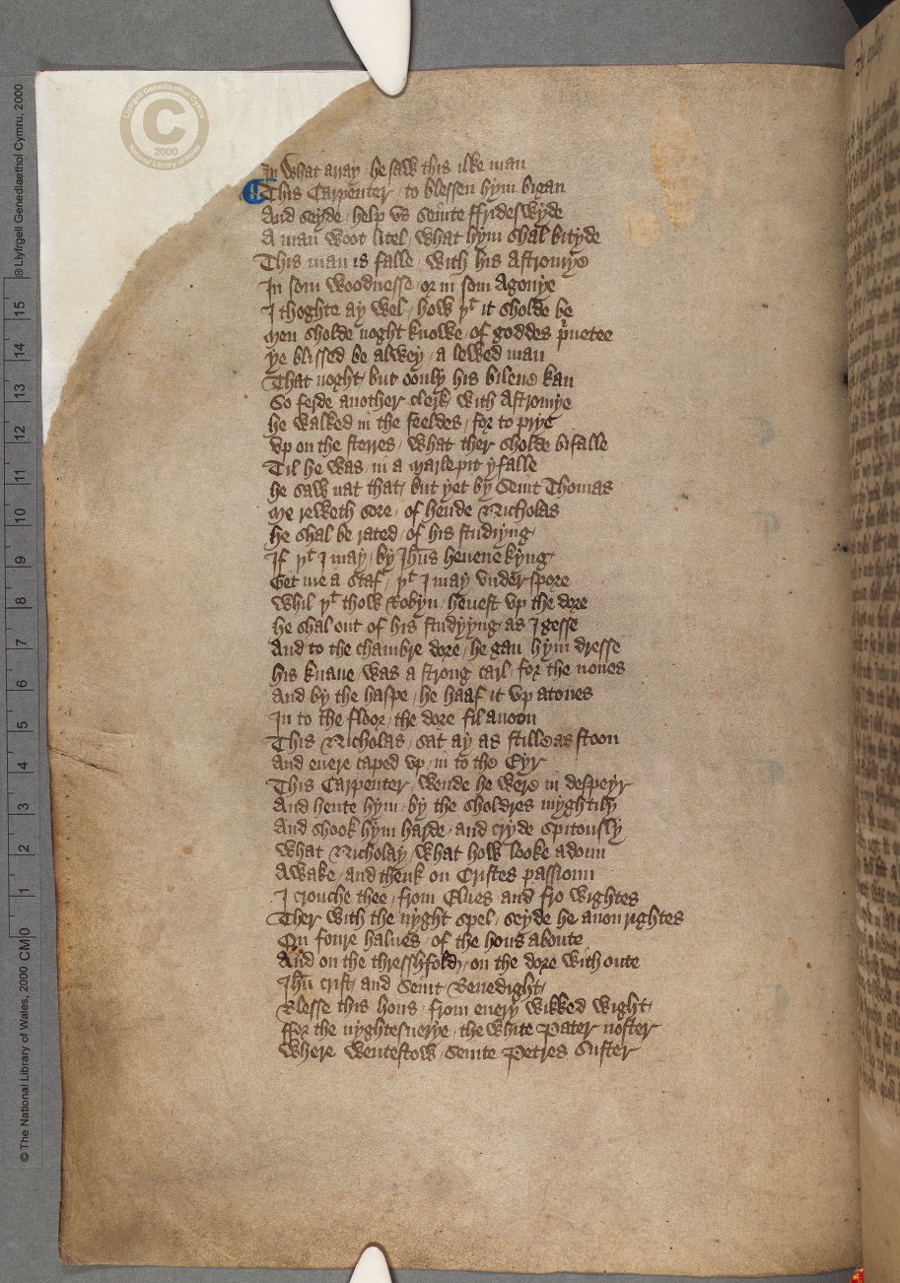 In what array / he saw this ilke man
This Carpenter / to blessen hym bigan
And seyde / help vs seinte ffrideswyde
A man woot litel / what hym shal bityde
This man is falle / with his Astromye
In som woodnesse / or in som Agonye
I thoghte ay wel / how yt it sholde be
Men sholde noght knowe / of goddes pryuetee
ye blissed be alwey / a lewed man
That noght / but oonly his bileue kan
So ferde another clerk / with Astromye
he walked in the feeldes / for to prye
vp on the sterres / what ther sholde bifalle
Til he was / in a Marlepit yfalle
he saw nat that / but yet by Seint Thomas
Me reweth sore / of hende Nicholas
he shal be rated / of his studiyng
If yt I may / by Ihus heuene kyng
Get me a staf / yt I may vnderspore
whil yt thow Robyn / heuest vp the dore
he shal out of his studiyng / as I gesse
And to the chambre dore / he gan hym dresse
his knaue / was a strong carl / for the nones
And by the haspe / he haaf it vp atones
In to the floor / the dore fil anoon
This Nicholas / sat ay as stille as stoon
And euere caped vp / in to the Eyr
This Carpenter / wende he were in despeyr
And hente hym / by the sholdres myghtily
And shook hym harde / and cryde spitously
what Nicholay / what how looke adoun
Awake / and thenk on Cristes passioun
I crouche thee / from Elues and fro wightes
Ther with the nyght spel / seyde he anon rightes
On foure halues / of the hous aboute
And on the thresshfold / on the dore with oute
Ihu crist / and Seint Benedight
Blesse this hous / from euery wikked wight
ffor the nyghtes uerye / the white Pater noster
where wentestow / seinte Petres suster
Llyfrgell Genedlaethol Cymru
C
2000
National Library of Wales
© Llyfrgell Genedlaethol Cymru, 2000
15
14
13
12
11
10
9
8
7
6
5
4
3
2
1
CM 0
© The National Library of Wales, 2000